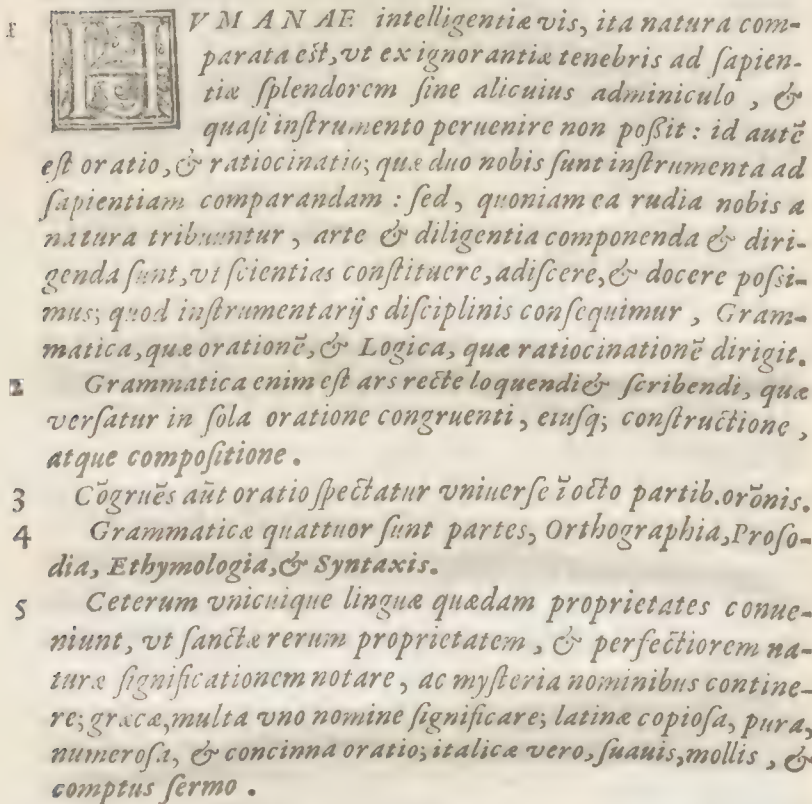 1 HVMANAE intelligentiæ vis, ita natura com-
parata eſt, vt ex ignorantiæ tenebris ad ſapien-
tiæ ſplendorem ſine alicuius adminiculo , &
quaſi inſtrumento peruenire non poßit : id autē
eſt oratio, & ratiocinatio; quæ duo nobis ſunt inſtrumenta ad
ſapientiam comparandam : ſed, quoniam ea rudia nobis a
natura tribuuntur , arte & diligentia componenda & diri-
genda ſunt, vt ſcientias conſtituere, adiſcere, & docere poſsi-
mus; quod inſtrumentarijs diſciplinis conſequimur , Gram-
matica, quæ orationē, & Logica, quæ ratiocinationē dirigit.
2 Grammatica enim eſt ars recte loquendi & ſcribendi, quæ
verſatur in ſola oratione congruenti, eiuſq; conſtructione ,
atque compoſitione .
3 Cōgruēs aūt oratio ſpectatur vniuerſe ī octo partib. orōnis.
4 Grammaticæ quattuor ſunt partes, Orthographia, Proſo-
dia, Ethymologia, & Syntaxis.
5 Ceterum vnicuique linguæ quædam proprietates conue-
niunt, vt ſanctæ rerum proprietatem , & perfectiorem na-
turæ ſignificationem notare, ac myſteria nominibus contine-
re; græcæ, multa vno nomine ſignificare; latinæ copioſa, pura,
numeroſa, & concinna oratio; italicæ vero, ſuauis, mollis , &
comptus ſermo .